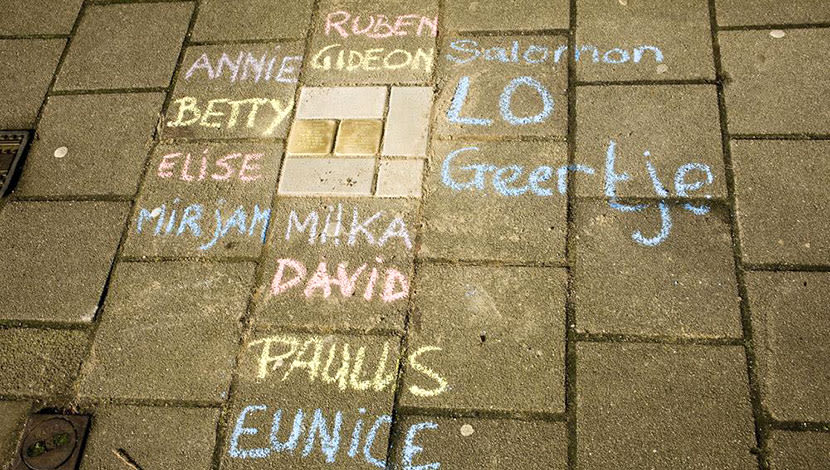 RUBEN
GIDEON
Salomon
ANNIE
LO
BETTY
Geertje
ELISE
MIRJAM
MIKA
DAVID
PAULUS
EUNICE